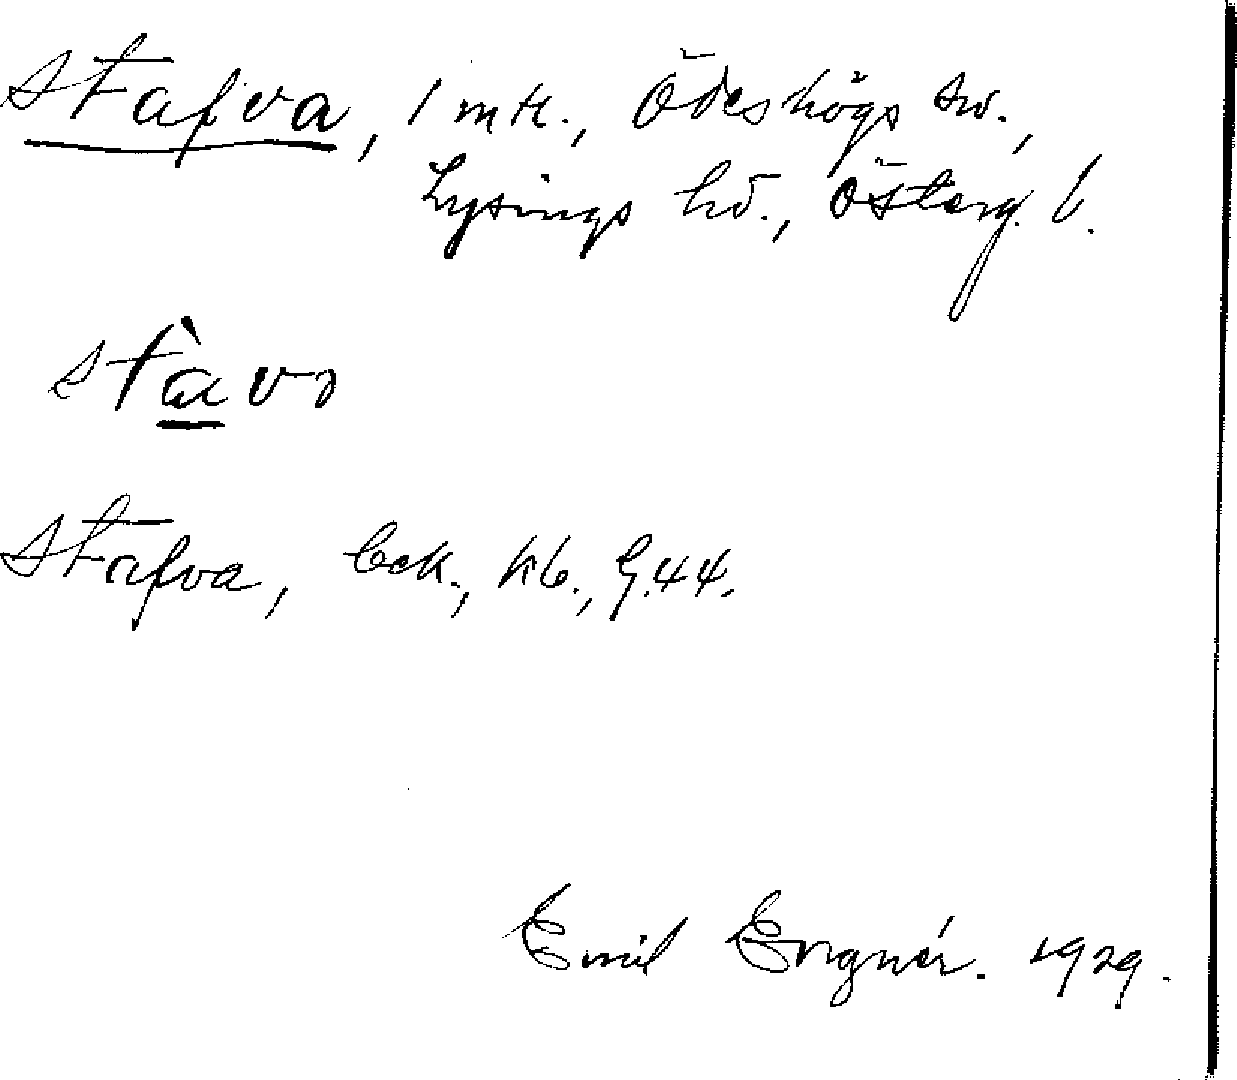 Stafva, 1 mtl., Ödeshögs sn.,
Lysings hd., Österg. l.
stàvɔ
Stafva, Eck., kb., G.44.
Emil 1929.